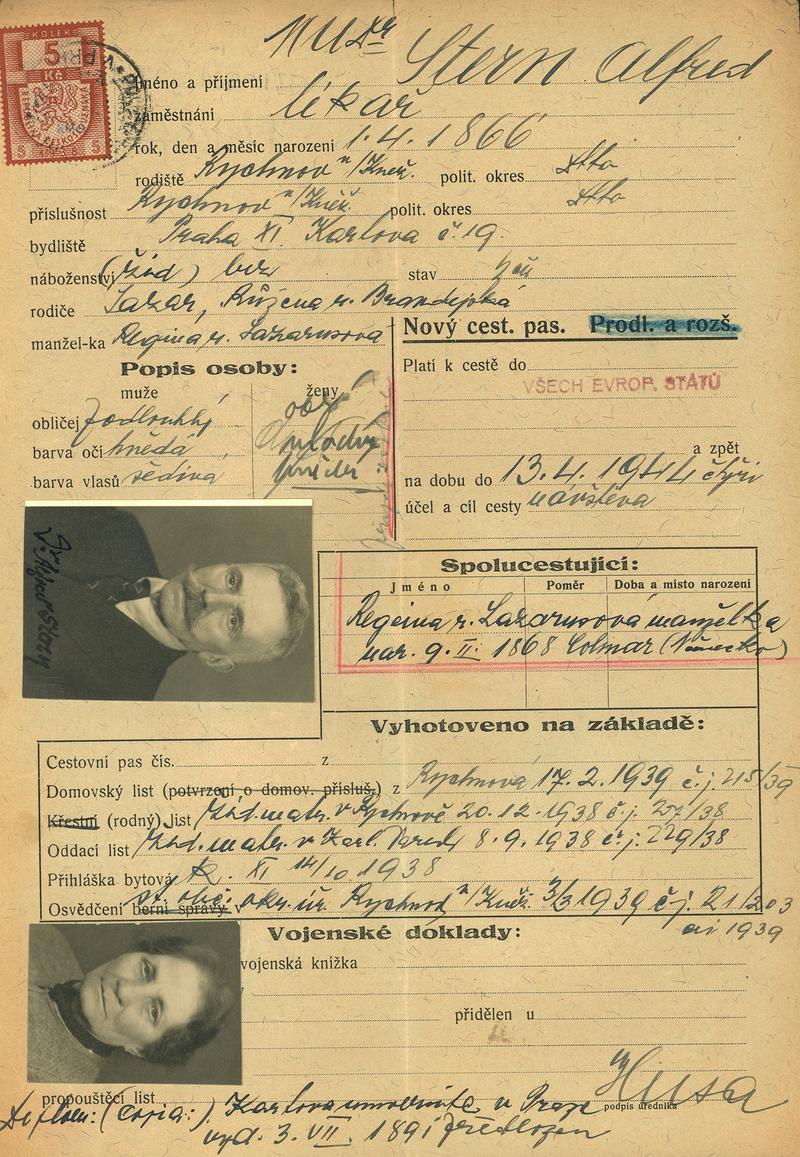 MUDr Stern Alfred
KOLEK
5
Kč
5 5
jméno a příjmení
zaměstnání lékař
rok, den a měsíc narození 1.4. 1866
rodiště Rychnov n/Kněž. polit. okres dtto
příslušnost Rychnov n/Kněž. polit. okres dtto
bydliště Praha XI Karlova č. 19.
náboženství (žid) bez stav žen
rodiče Lazar, Růžena r. Brandejská
manžel-ka Regina r. Lazarusova
Nový cest. pas. Prodl. a rozš.
Popis osoby:
muže ženy
obličej podlouhlý
barva očí hnědá
barva vlasů šedivá
Platí k cestě do
VŠECH EVROP. STÁTŮ
a zpět
na dobu do 13.4. 1944 čtyři
účel a cíl cesty návštěva
Spolucestující:
Jméno Poměr Doba a místo narození
Regina r. Lazarusová manželka
nar. 9. II. 1868 Colmar (Německo)
Vyhotoveno na základě:
Cestovní pas čís. z
Domovský list (potvrzení o domov. přísluš.) z Rychnova 17.2.1939 č.j. 215/39
Křestní (rodný) list žid. matr. v Rychnově 20.12.1938 č.j. 257/38
Oddací list žid. matr. v Karl. Varech 8.9.1938 č.j. 229/38
Přihláška bytová XI 14/10 1938
Osvědčení berní správy v st. obč. okr. úř. Rychnov n/Kněž. 3/3 1939 č.j. 21/203
ai 1939
Vojenské doklady:
vojenská knížka
přidělen u
propouštěcí list
Husa
podpis úředníka
Diplom: (copia:) Karlova university v Praze
vyd. 3. VII. 1891 předložen